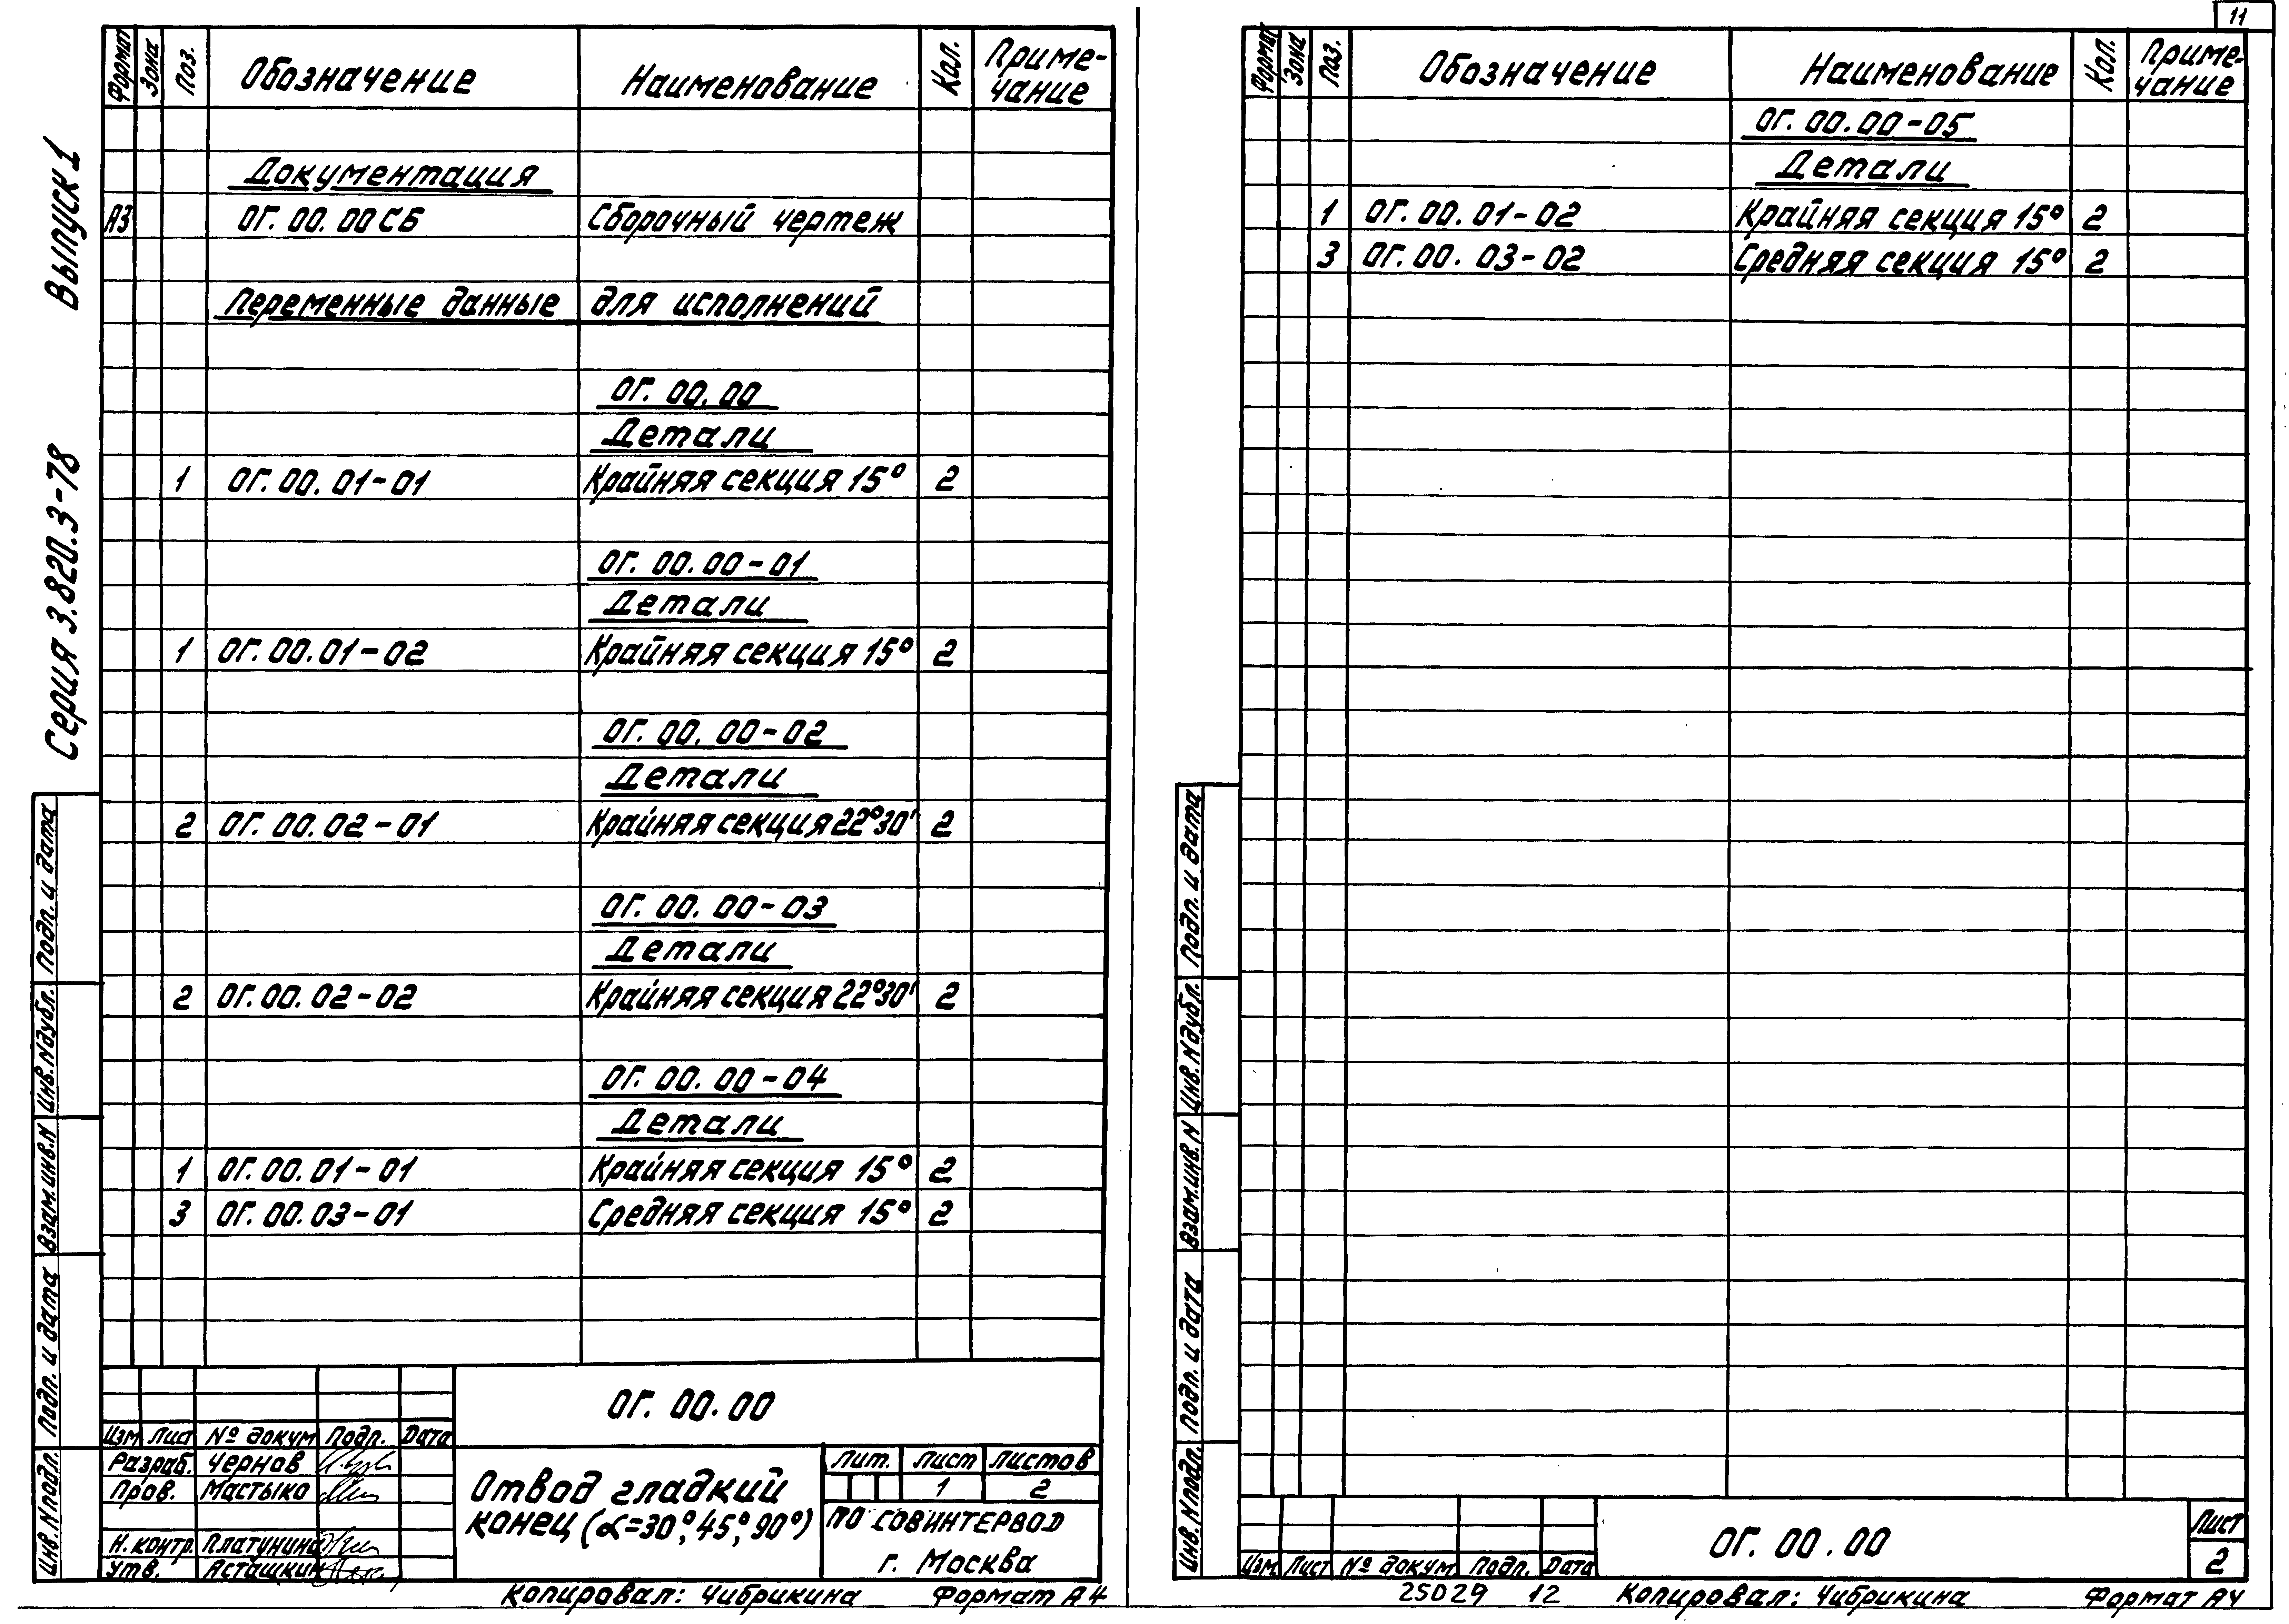 Серия 3.820.3-78 Выпуск 1
Формат Зона Поз. Обозначение Наименование Кол. Приме-
чание
Документация
А3 ОГ. 00. 00 СБ Сборочный чертеж
Переменные данные для исполнений
ОГ. 00. 00
Детали
1 ОГ. 00. 01-01 Крайняя секция 15° 2
ОГ. 00. 00-01
Детали
1 ОГ. 00. 01-02 Крайняя секция 15° 2
ОГ. 00. 00-02
Детали
2 ОГ. 00. 02-01 Крайняя секция 22°30' 2
ОГ. 00. 00-03
Детали
2 ОГ. 00. 02-02 Крайняя секция 22°30' 2
ОГ. 00. 00-04
Детали
1 ОГ. 00. 01-01 Крайняя секция 15° 2
3 ОГ. 00. 03-01 Средняя секция 15° 2
Инв. N подл. Подп. и дата Взам. инв. N Инв. N дубл. Подп. и дата
ОГ. 00. 00
Изм Лист № докум Подп. Дата
Разраб. Чернов
Пров. Мастыко
Н. контр. Платунина
Утв. Асташкин
Отвод гладкий
конец (α=30°, 45°, 90°)
Лит. Лист Листов
1 2
ПО СОВИНТЕРВОД
г. Москва
Копировал: Чибрикина Формат А4
11
Формат Зона Поз. Обозначение Наименование Кол. Приме-
чание
ОГ. 00. 00-05
Детали
1 ОГ. 00. 01-02 Крайняя секция 15° 2
3 ОГ. 00. 03-02 Средняя секция 15° 2
Инв. N подл. Подп. и дата Взам. инв. N Инв. N дубл. Подп. и дата
Изм Лист № докум Подп. Дата
ОГ. 00. 00
Лист
2
25029 12 Копировал: Чибрикина Формат А4